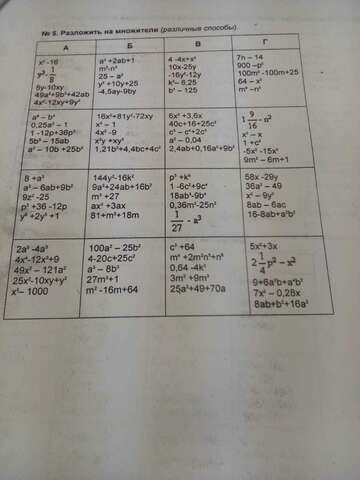 № 5. Разложить на множители (различные способы).
А
Б
В
Г
x² -16
y³- 1/8
5y-10xy
49a²+9b²+42ab
4x²-12xy+9y²
a² +2ab+1
m³-n³
25 – a²
y² +10y+25
-4,5ay-9by
4 -4x+x²
10x-25y
-16y²-12y
k²– 6,25
b³ – 125
7h – 14
900 –p²
100m² -100m+25
64 – x³
a⁴ – b⁴
0,25a² – 1
1 -12p+36p²
5b² – 15ab
a² – 10b +25b²
16x²+81y²-72xy
x³ – 1
4x² -9
x²y +xy²
1,21b²+4,4bc+4c²
6x² + 3,6x
40c+16+25c²
c³ – c²+2c²
a² – 0,04
2,4ab+0,16a²+9b²
1 9/16 - n²
x² – x
1 +c³
-5x² -15x³
9m² – 6m+1
8 +a³
a² – 6ab+9b²
9z² -25
p² +36 -12p
y² +2y +1
144y²-16k²
9a²+24ab+16b²
m³ +27
ax² +3ax
81+m²+18m
p³ +k³
1 -6c²+9c⁴
18ab²-9b³
0,36m²-25n²
1/27 - a³
58x -29y
36a² – 49
x² – 9y²
8ab – 6ac
16-8ab+a²b²
4x²-12x³+9
49x² – 121a²
25x²-10xy+y²
x³– 1000
100a² – 25b²
4-20c+25c²
a³ – 8b³
27m³+1
m² -16m+64
c³ +64
0,64 -4k²
3m² +9m³
25a²+49+70a
5x²+3x
2 1/4 p² – x²
9+6a²b+a⁴b²
7x² – 0,28x
8ab+b²+16a²